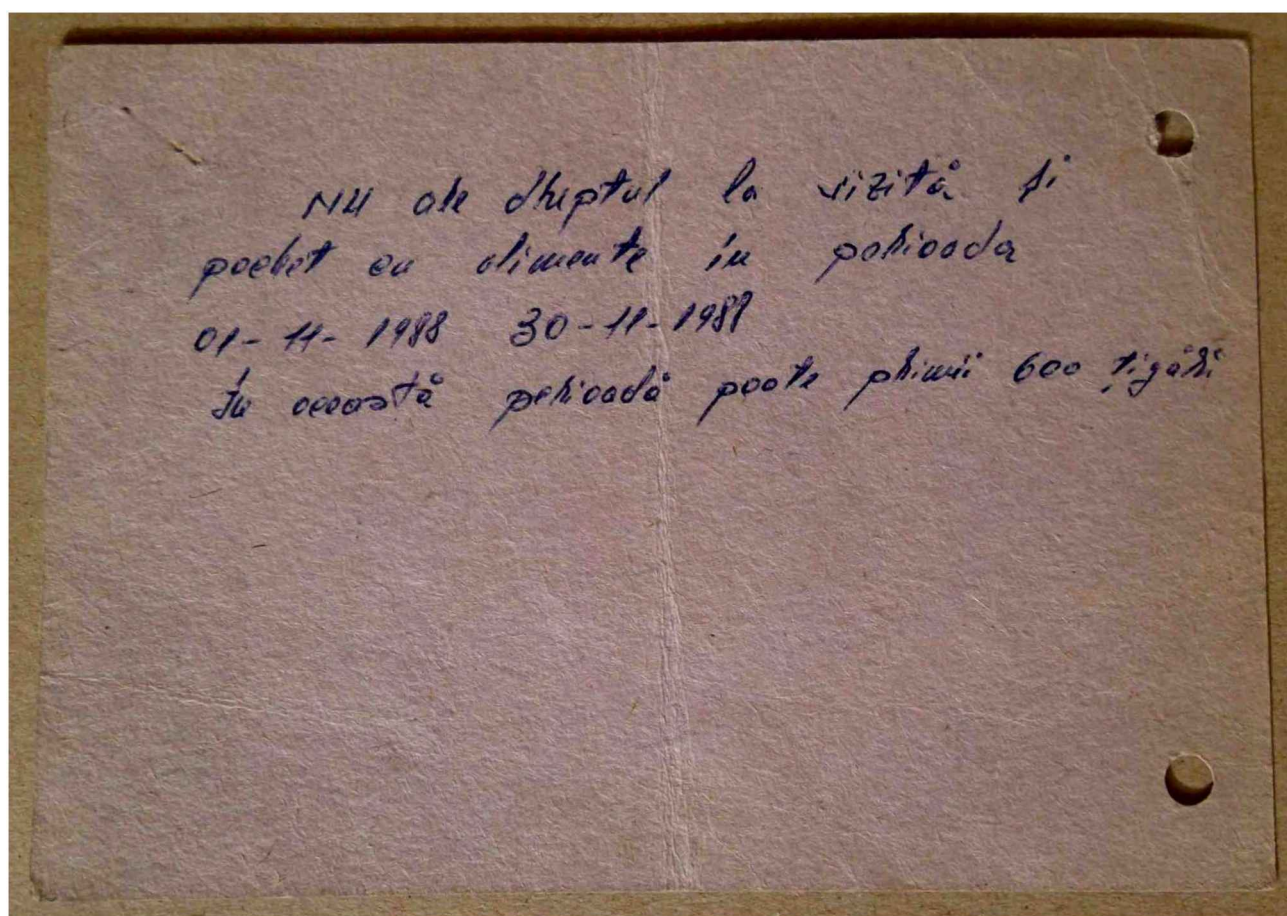 NU are dreptul la vizită și
pachet cu alimente în perioada
01-11-1988 30-11-1988
În această perioadă poate primii 600 țigări